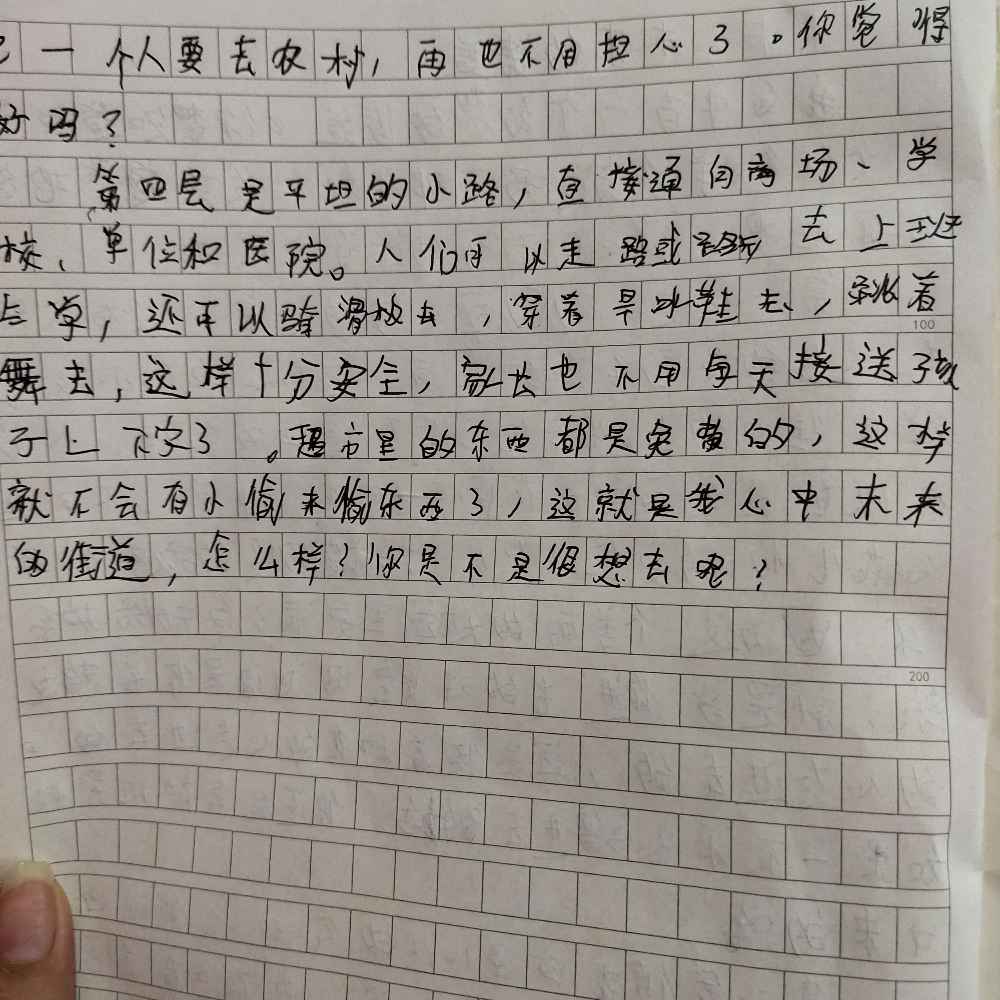 一个人要去农村，再也不用担心了。你觉得
好吗？
第四层是平坦的小路，直接通向商场、学
校、单位和医院。人们可以走路或去上班
上学，还可以骑滑板去，穿着旱冰鞋去，跳着
100
舞去，这样十分安全，家长也不用每天接送孩
子上下学了。超市里的东西都是免费的，这样
就不会有小偷来偷东西了，这就是我心中未来
的街道，怎么样？你是不是很想去呢？
200